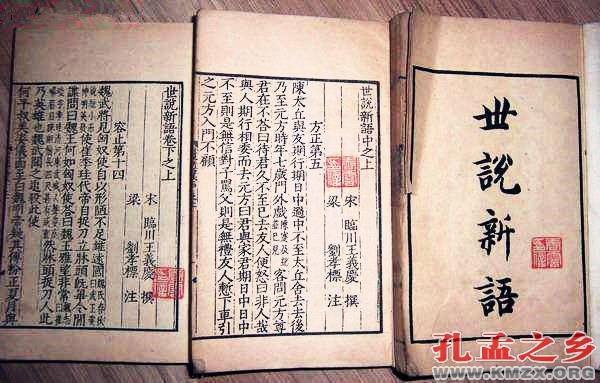 世說新語
世說新語中之上
方正第五
宋 臨川王義慶 撰
梁 劉孝標 注
陳太丘與友期行期日中過中不至太丘舍去去後
乃至元方時年七歲門外戲陳寔及紀並已見客問元方尊
君在不答曰待君久不至已去友人便怒曰非人哉
與人期行相委而去元方曰君與家君期日中日中
不至則是無信對子罵父則是無禮友人慙下車引
之元方入門不顧
世說新語卷下之上
容止第十四
宋 臨川王義慶 撰
梁 劉孝標 注
魏武將見匈奴使自以形陋不足雄遠國魏氏春秋
使崔季珪代帝自捉刀立牀頭既畢令間
諜問曰魏王何如匈奴使答曰魏王雅望非常
然牀頭捉刀人此
乃英雄也魏武聞之追殺此使
何平叔美姿儀面至白魏明帝疑其傅粉正夏月與
孔孟之乡
WWW.KMZX.ORG